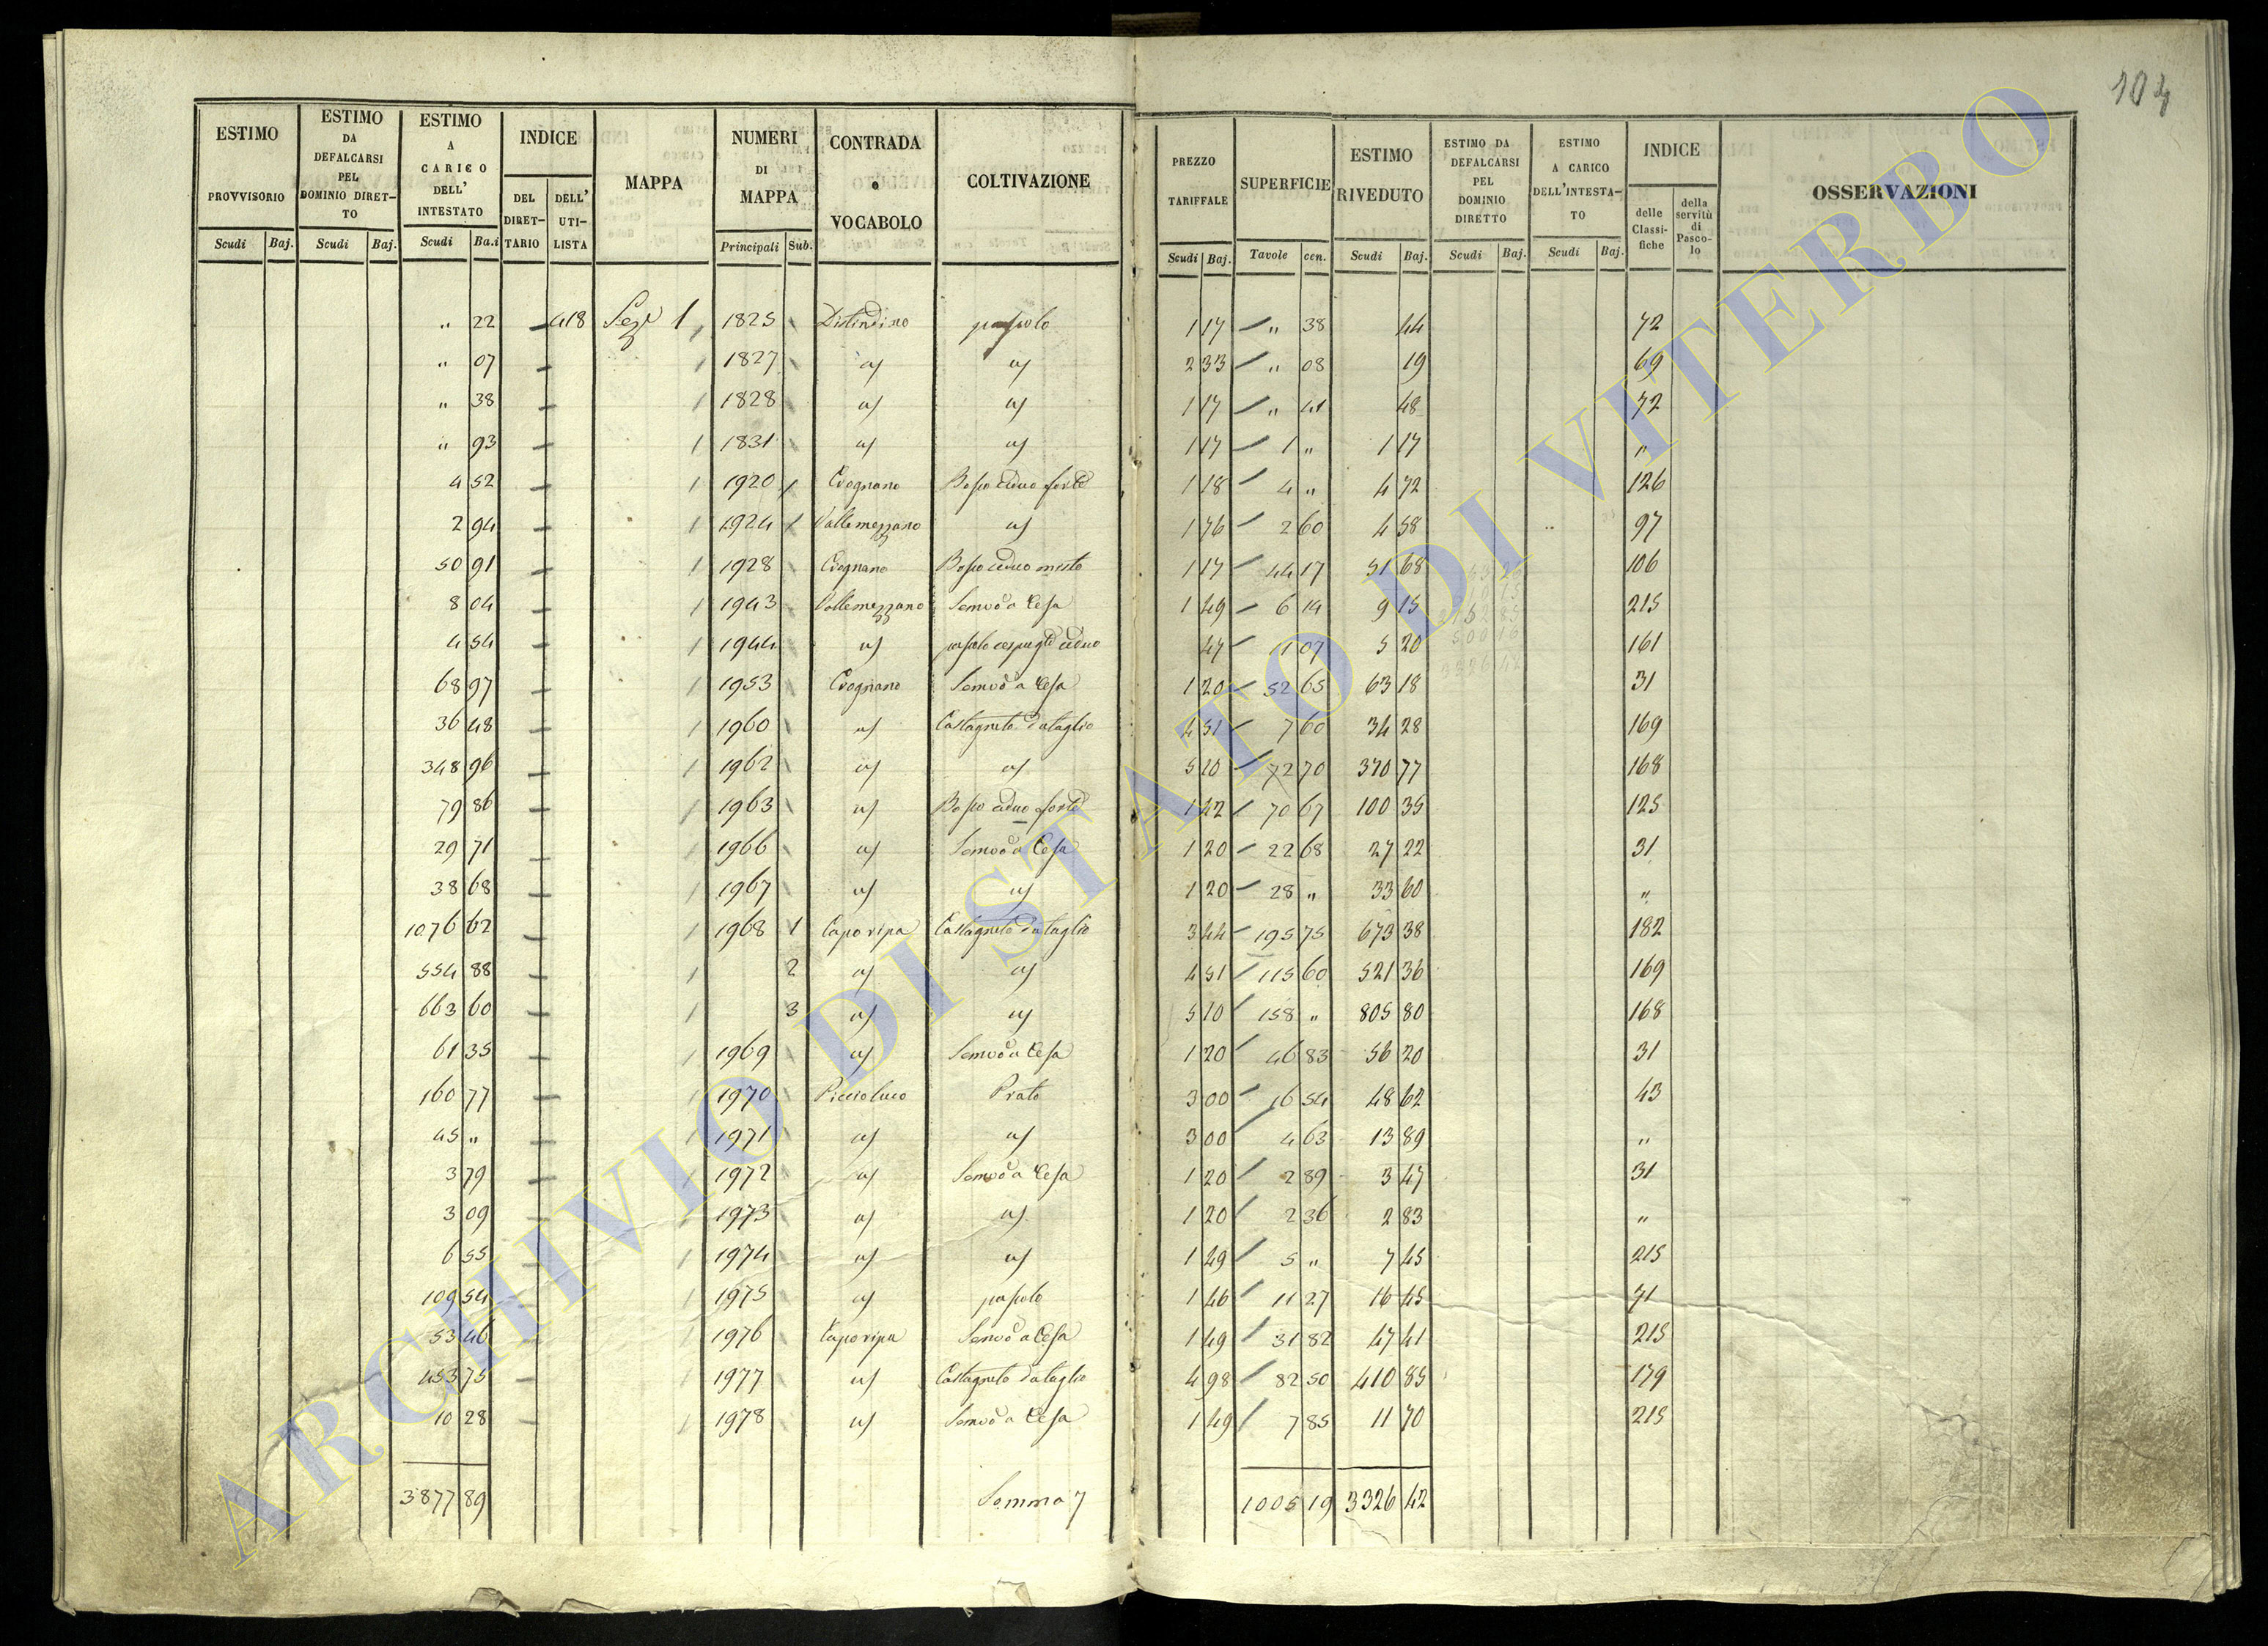 104
ESTIMO PROVVISORIO Scudi Baj. ESTIMO DA DEFALCARSI PEL DOMINIO DIRETTO Scudi Baj. ESTIMO A CARICO DELL' INTESTATO Scudi Ba.i INDICE DEL DIRETTARIO DELL' UTILISTA MAPPA NUMERI DI MAPPA Principali Sub. CONTRADA o VOCABOLO COLTIVAZIONE PREZZO TARIFFALE Scudi Baj. SUPERFICIE Tavole cen. ESTIMO RIVEDUTO Scudi Baj. ESTIMO DA DEFALCARSI PEL DOMINIO DIRETTO Scudi Baj. ESTIMO A CARICO DELL'INTESTATO Scudi Baj. INDICE delle Classifiche della servitù di Pascolo OSSERVAZIONI
" 22 418 Sez.e 1 1825 Distindino pascolo 1 17 " 38 44 72
" 07 1 1827 a/ a/ 2 33 " 08 19 69
" 38 1 1828 a/ a/ 1 17 " 41 48 72
" 93 1 1831 a/ a/ 1 17 1 " 1 17 "
4 52 1 1920 1 Evognano Bosco ceduo forte 1 18 4 " 4 72 126
2 94 1 1924 1 Vallemezzano a/ 1 76 2 60 4 58 97
50 91 1 1928 Evognano Bosco ceduo misto 1 17 44 17 51 68 106
8 04 1 1943 Vallemezzano Semvo a Cesa 1 49 6 14 9 15 215
4 54 1 1944 a/ pascolo cespuglto ceduo 47 11 07 5 20 161
68 97 1 1953 Evognano Semvo a Cesa 1 20 52 65 63 18 31
36 48 1 1960 a/ Castagneto da taglio 4 51 7 60 34 28 169
348 96 1 1962 a/ a/ 5 10 72 70 370 77 168
79 86 1 1963 a/ Bosco ceduo forte 1 42 70 67 100 35 125
29 71 1 1966 a/ Semvo a Cesa 1 20 22 68 27 22 31
38 68 1 1967 a/ a/ 1 20 28 " 33 60 "
1076 62 1 1968 1 Capo ripa Castagneto da taglio 3 44 195 75 673 38 182
554 88 1 2 a/ a/ 4 51 115 60 521 36 169
663 60 1 3 a/ a/ 5 10 158 " 805 80 168
61 35 1 1969 a/ Semvo a Cesa 1 20 46 83 56 20 31
160 77 1 1970 Piccioluco Prato 3 00 16 54 48 62 43
45 " 1 1971 a/ a/ 3 00 4 63 13 89 "
3 79 1 1972 a/ Semvo a Cesa 1 20 2 89 3 47 31
3 09 1 1973 a/ a/ 1 20 2 36 2 83 "
6 55 1 1974 a/ a/ 1 49 5 " 7 45 215
109 54 1 1975 a/ pascolo 1 46 11 27 16 45 71
53 46 1 1976 Capo ripa Semvo a Cesa 1 49 31 82 47 41 215
453 75 1 1977 a/ Castagneto da taglio 4 98 82 50 410 85 179
10 28 1 1978 a/ Semvo a Cesa 1 49 7 85 11 70 215
3877 89 Somma 7 1005 19 3326 42
ARCHIVIO DI STATO DI VITERBO